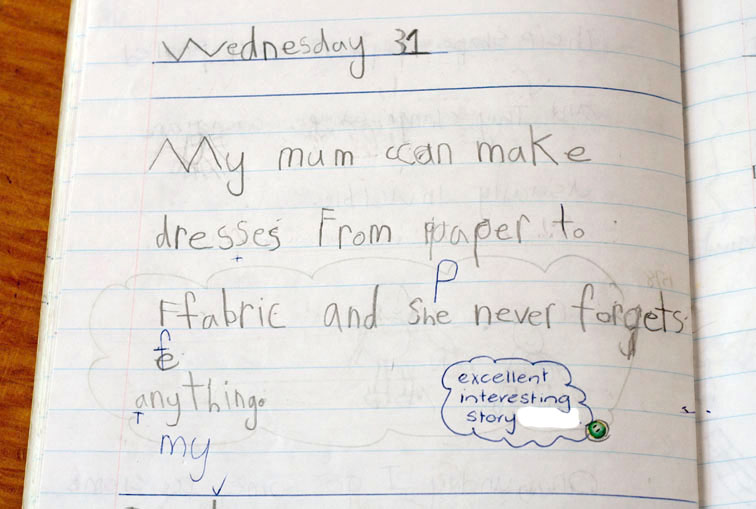 Wednesday 31
My mum can make
dresses from paper to
p
Ffabric and she never forgets
f
anything.
my
excellent
interesting
story